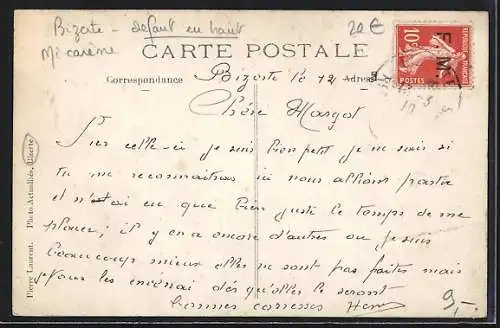 Bizerte - defaut en haut
Mi carème
20 €
CARTE POSTALE
Correspondance
Adresse
REPUBLIQUE FRANÇAISE
10c
F.M.
POSTES
Bizerte le 12
Chère Margot
Sur celle-ci je suis bien petit je ne sais si
tu me reconnaitras ici nous allions partir
et n'ai eu que bien juste le temps de me
placer; il y en a encore d'autres ou je suis
beaucoup mieux elles ne sont pas faites mais
je vous les enverrai dès qu'elles le seront
bonnes caresses Henri
9,-
Pierre Laurent. Photo Actualités, Bizerte